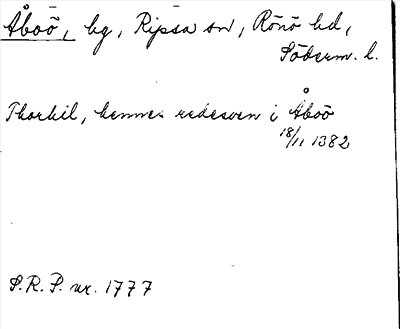 Åboö, hg, Ripsa sn, Rönö hd,
Söderm. l.
Thorkil, hennes redesven i Åboö
18/11 1382
S.R.P. nr. 1777